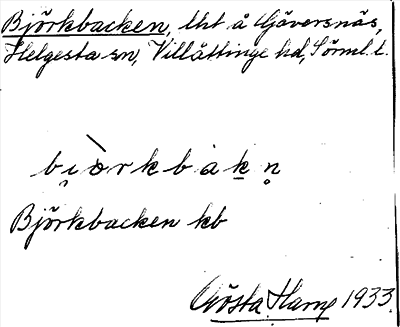 Björkbacken, lht å Gäversnäs,
Helgesta sn, Villåttinge hd, Sörml. l.
bi̯ö̀rkbàkn̥
Björkbacken kb
Gösta Harre 1933.